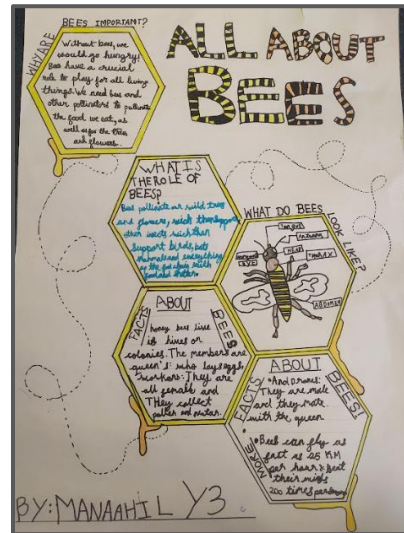 ALL ABOUT
BEES
WHY ARE
BEES IMPORTANT?
Without bees, we
would go hungry!
Bees have a crucial
role to play for all living
things. We need bees and
other pollinators to pollinate
the food we eat, as
well as the trees
and flowers.
WHAT IS
THE ROLE OF
BEES?
Bees pollinate our wild trees
and flowers, which then support
other insects which then
support birds, bats
mammals and everything
up the food chain with
food and shelter
WHAT DO BEES
LOOK LIKE?
ANTENNA
HEAD
THORAX
EYE
ABDOMEN
FACTS
ABOUT
BEES
honey bees live
in hives or
colonies. The members are
queen's: who lays eggs
workers: They are
all female and
They collect
pollen and nectar.
MORE
FACTS
ABOUT
BEES!
And drones:
They are male
and they mate
with the queen
Bees can fly as
fast as 25 KM
per hour & beat
their wings
200 times per
BY: MANAAHIL Y3